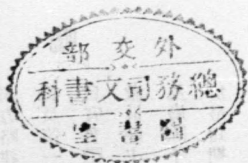 外交部
總務司文書科
圖書室